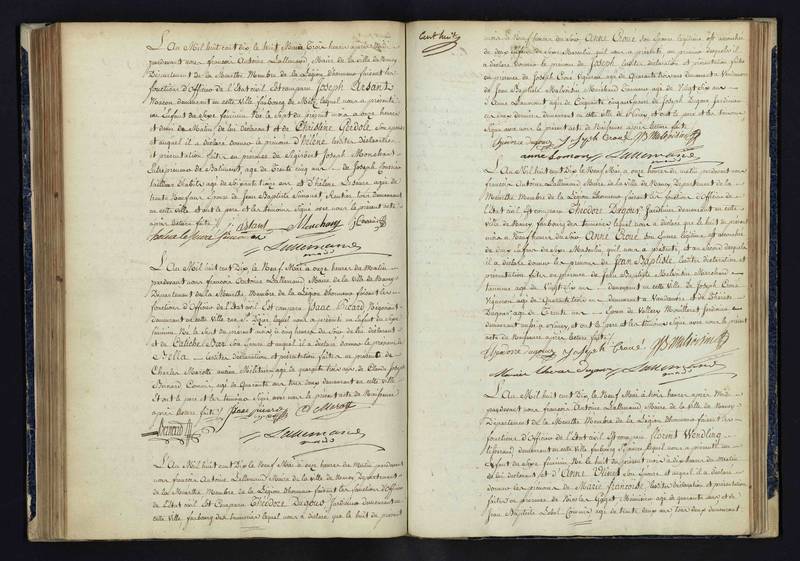 L'An Mil huit cent Dix, le huit Mai à Trois heures après Midi
pardevant nous françois Antoine Lallemand Maire de la Ville de Nancy
Département de la Meurthe Membre de la Légion d'honneur faisant les
fonctions d'Officier de l'Etat civil Est comparu Joseph Arsant
Maçon demeurant en cette Ville faubourg de Metz, lequel nous a présenté
un Enfant du Sexe féminin Né le Sept du présent mois à onze heures
et demie du Matin, de lui déclarant et de Christine
et auquel il a déclaré donner le prénom d'hélène lesdites déclaration
et présentation faites en présence de Joseph Monchant
de Bâtiment, agé de Trente cinq ans
agé de Soixante cinq ans et d'hélène agée de
trente Neuf ans Epouse de Jean Baptiste Rentier, tous demeurant
en cette Ville et ont le père et les témoins Signé avec nous le présent acte
après lecture faite /.
Lallemand
L'An Mil huit cent Dix, le Neuf Mai à onze heures du Matin
pardevant nous françois Antoine Lallemand Maire de la Ville de Nancy
Département de la Meurthe Membre de la Légion d'honneur faisant les
fonctions d'Officier de l'Etat civil Est comparu Isaac Picard Négociant
demeurant en cette Ville lequel nous a présenté un Enfant du Sexe
féminin Né le Sept du présent mois à cinq heures du Soir de lui déclarant
et de Caliche Bar Son Epouse et auquel il a déclaré donner le prénom de
Bella lesdites déclaration et présentation faites en présence de
Charles Marotte ancien Militaire agé de quarante trois ans de Claude Joseph
Bernard Commis, agé de quarante ans tous deux demeurant en cette Ville
Et ont le père et les témoins Signé avec nous le présent acte de Naissance
après lecture faite /. Isaac picard C Marotte
Bernard
Lallemand
L'An Mil huit cent Dix le Neuf Mai à onze heures du Matin pardevant
nous françois Antoine Lallemand Maire de la Ville de Nancy Département
de la Meurthe Membre de la Légion d'honneur faisant les fonctions d'Officier
de l'Etat civil Est Comparu Théodore Dugour Jardinier demeurant en
cette Ville faubourg des tanneries lequel nous a déclaré que le huit du présent
Cent huit
mois à Neuf heures du Soir Anne Croué Son Epouse légitime est accouchée
de deux Enfans du Sexe Masculin qu'il nous a présenté, au premier desquels il
a déclaré donner le prénom de Joseph lesdites déclaration et présentation faites
en présence de Joseph Croué Vigneron agé de Quarante trois ans demeurant à Vandœuvre
de Jean Baptiste Malvisin Marchand Tanneur agé de Vingt Six ans
d'Anne agée de Cinquante cinq ans de Joseph Dugour Jardinier
ces deux derniers demeurant en cette Ville de Nancy, et ont le père et les témoins
Signé avec nous le présent acte de Naissance après lecture faite
Joseph Croué JB Malvisin
anne Simon Lallemand
L'An Mil huit cent Dix le Neuf Mai, à onze heures du matin pardevant nous
françois Antoine Lallemand Maire de la Ville de Nancy Département de la
Meurthe Membre de la Légion d'honneur faisant les fonctions d'Officier de
l'Etat civil Est comparu Théodore Dugour Jardinier demeurant en cette
Ville de Nancy faubourg des tanneries lequel nous a déclaré que le huit du présent
mois à Neuf heures du Soir Anne Croué Son Epouse légitime, est accouchée
de deux Enfans du Sexe Masculin, qu'il nous a présenté, et au Second desquels
il a déclaré donner le prénom de Jean Baptiste lesdites déclaration et
présentation faites en présence de Jean Baptiste Malvisin Marchand
tanneur agé de Vingt Six ans demeurant en cette Ville de Joseph Croué
Vigneron agé de Quarante trois ans demeurant à Vandœuvre et de
Dugour agée de Trente un ans Epouse de Jardinier
demeurant aussi à Nancy, et ont le père et les témoins Signé avec nous le présent
acte de Naissance après lecture faite /.
Joseph Croué JB Malvisin
Lallemand
L'An Mil huit cent Dix, le Neuf Mai à trois heures après Midi
pardevant nous françois Antoine Lallemand Maire de la Ville de Nancy
Département de la Meurthe Membre de la Légion d'honneur faisant les
fonctions d'Officier de l'Etat civil Est comparu florent Wendling
demeurant en cette Ville faubourg lequel nous a présenté un
Enfant du Sexe féminin Né le huit du présent mois à dix heures du Matin
de lui déclarant et d'Anne Son Epouse et auquel il a déclaré
donner les prénoms de Marie françoise lesdites déclaration et présentation
faites en présence de Nicolas Menuisier agé de quarante ans et de
Jean Baptiste Commis agé de trente deux ans Tous deux demeurant